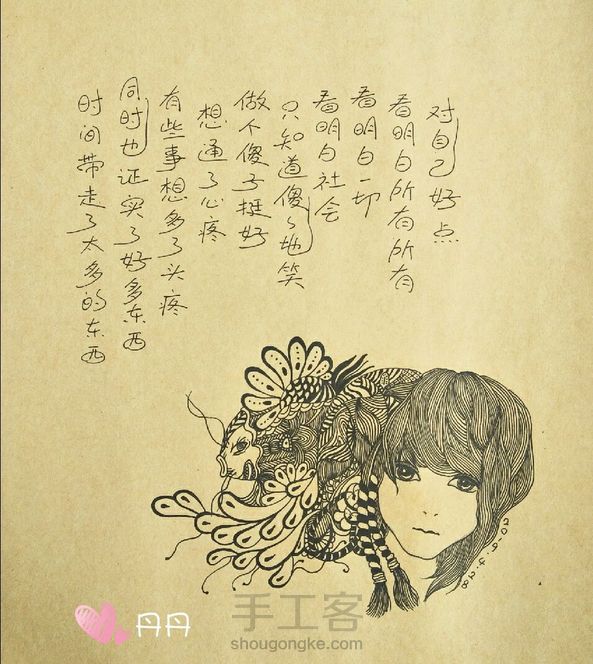 时间带走了太多的东西
同时也证实了好多东西
有些事想多了头疼
想通了心疼
做个傻子挺好
只知道傻々地笑
看明白社会
看明白一切
看明白所有所有
对自己好点
丹丹
手工客
shougongke.com